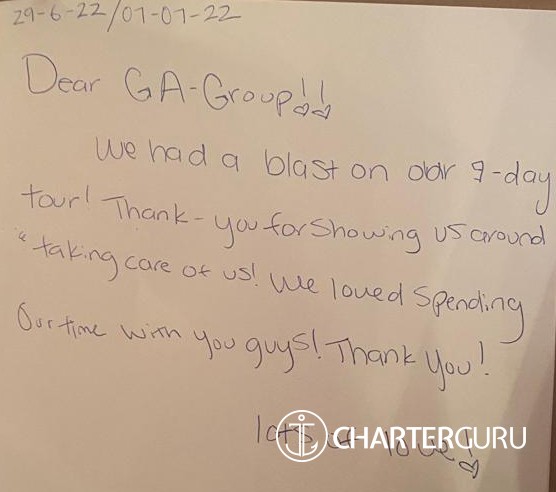 29-6-22/07-07-22
Dear GA-Group!!
We had a blast on our 9-day
tour! Thank-you for showing us around
& taking care of us! We loved spending
Our time with you guys! Thank You!
lots of love!
CHARTERGURU